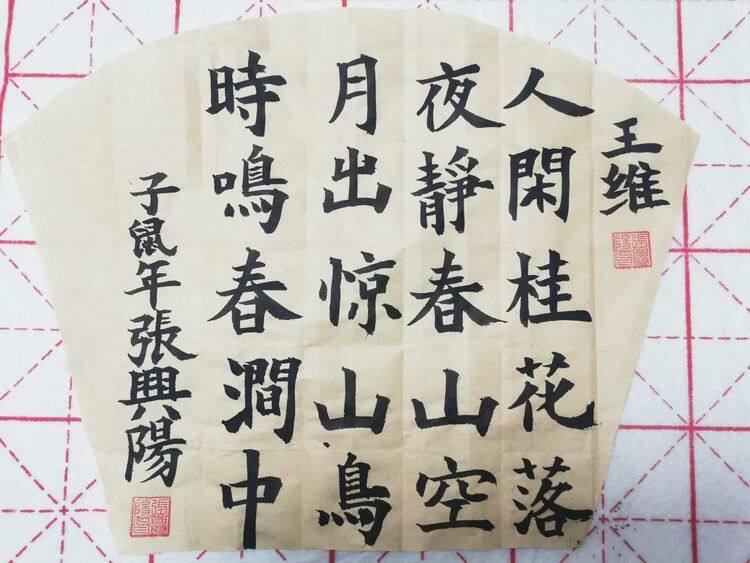 王维
人閑桂花落
夜靜春山空
月出惊山鳥
時鳴春澗中
子鼠年張興陽